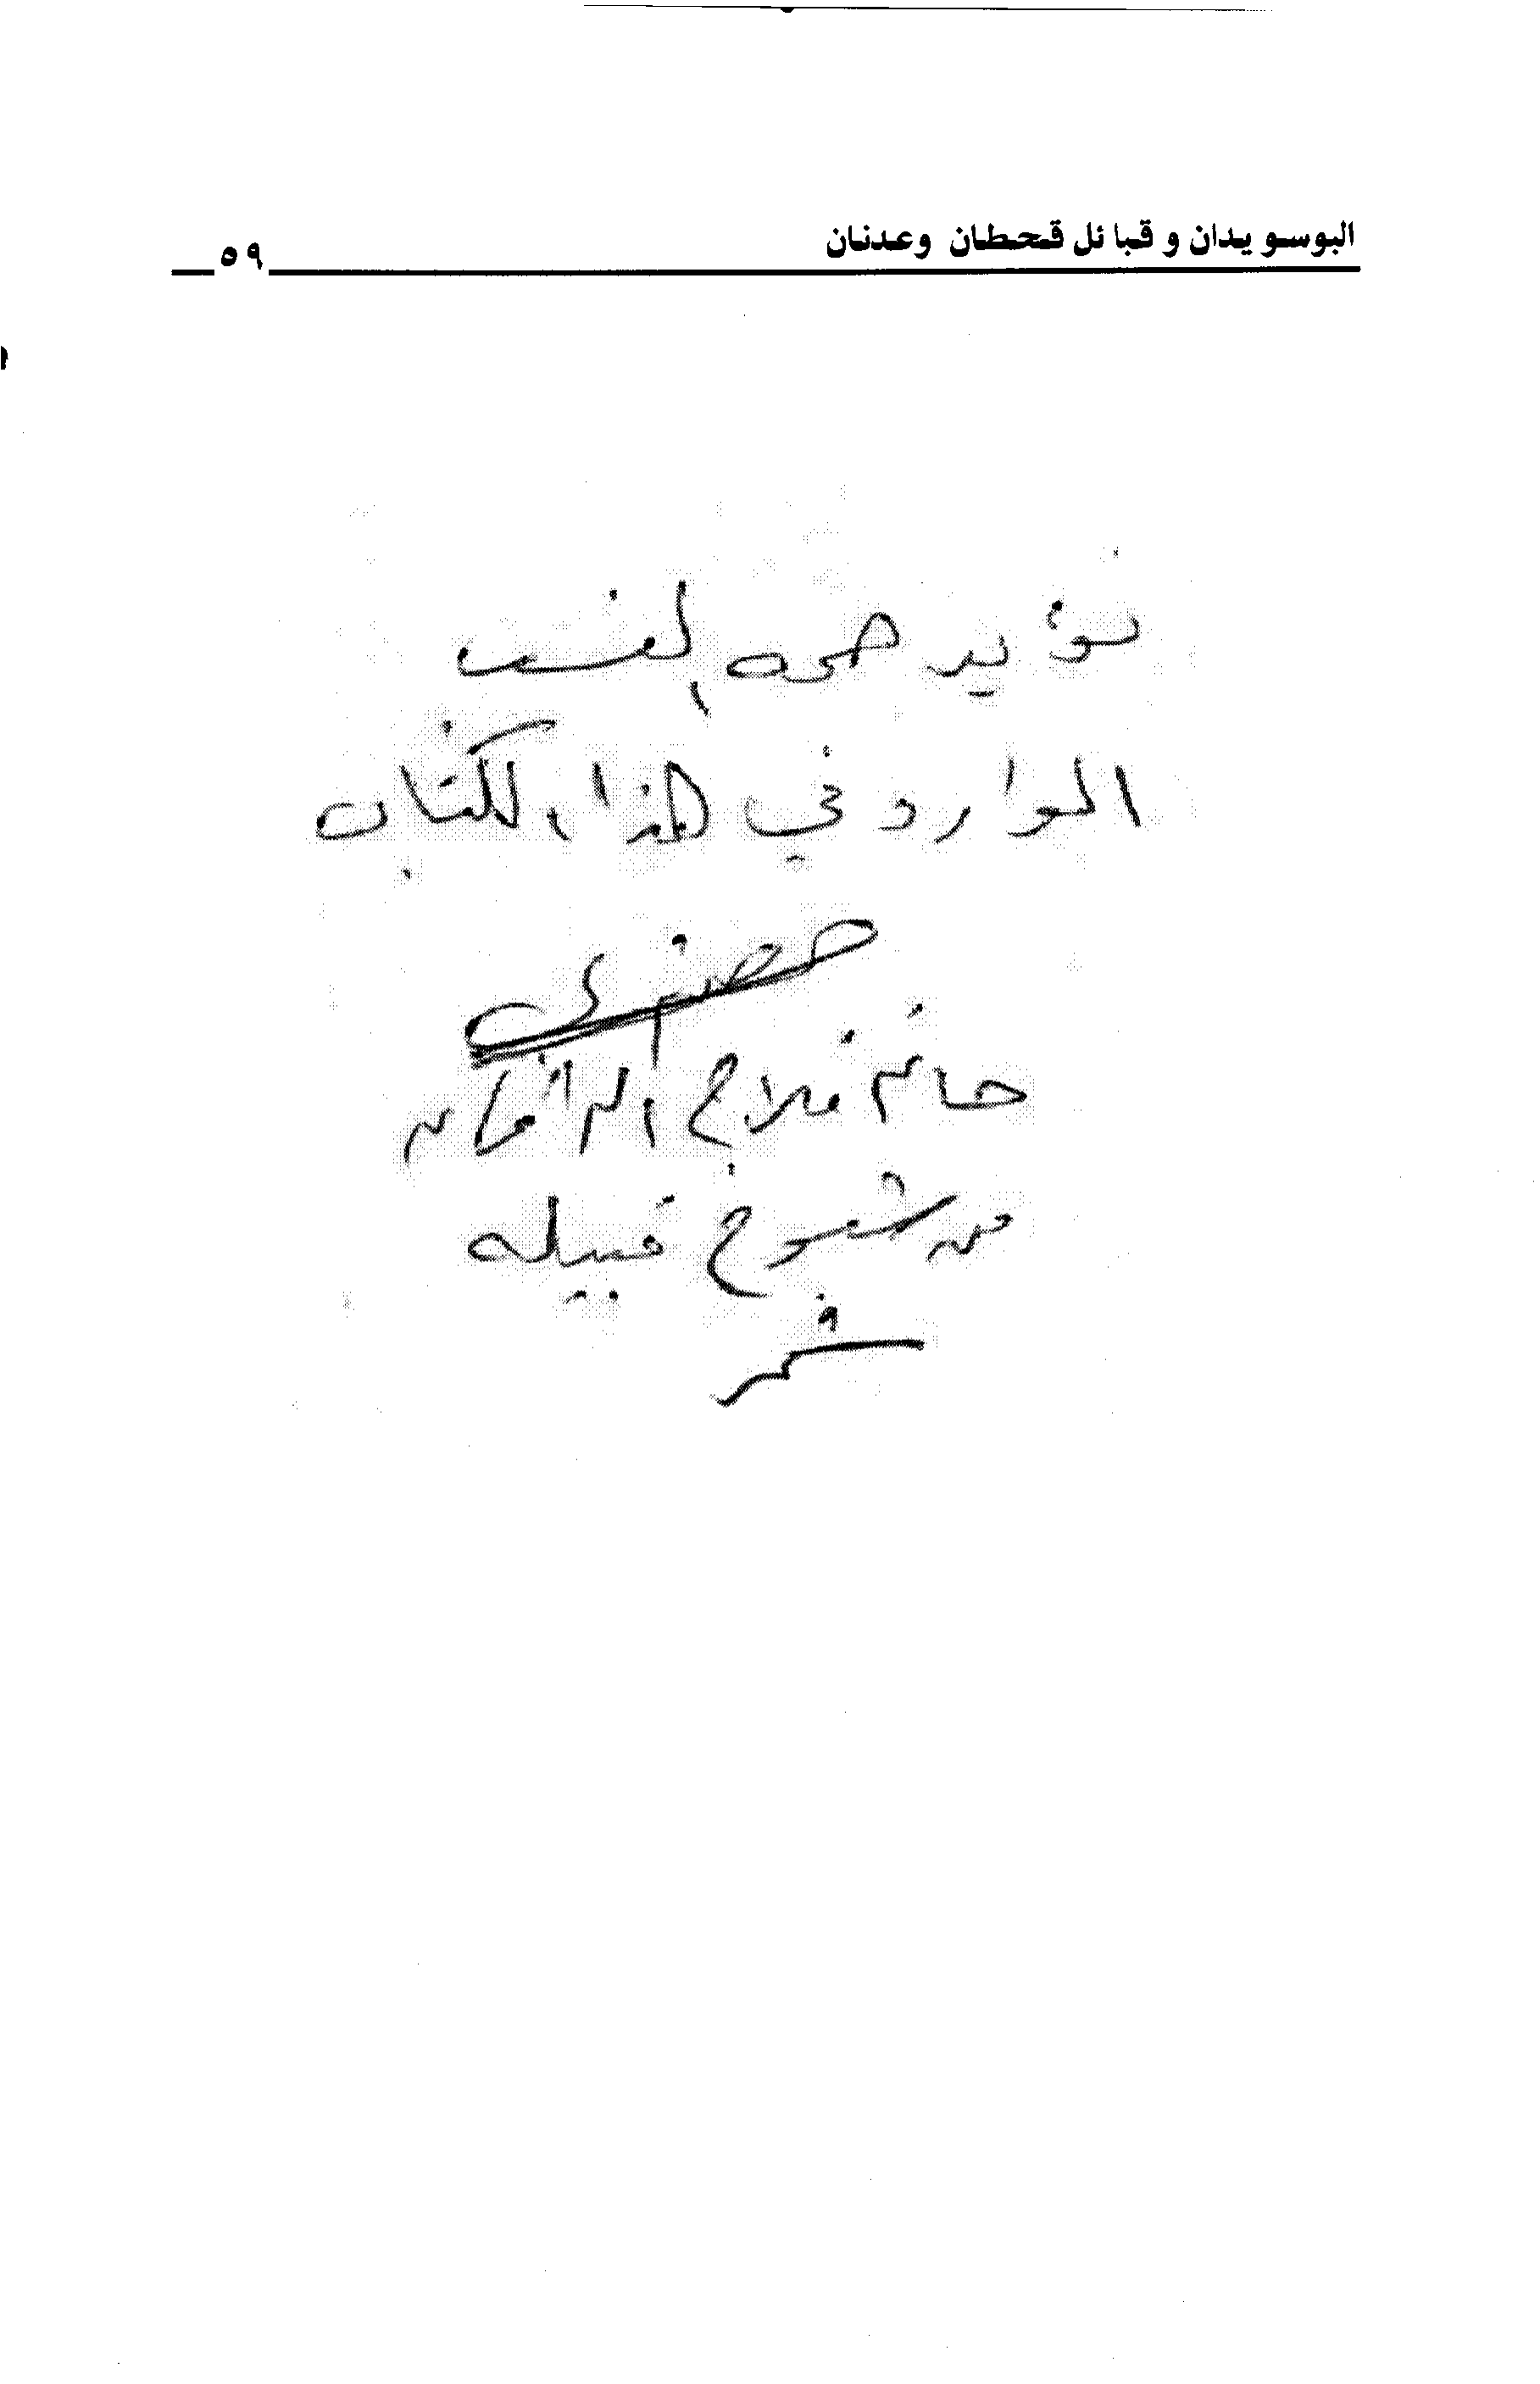 البوسويدان و قبائل قحطان وعدنان
٥٩
نؤيد صحه النسب
الوارد في هذا الكتاب
حاتم فلاح
من شيوخ قبيله
شمر